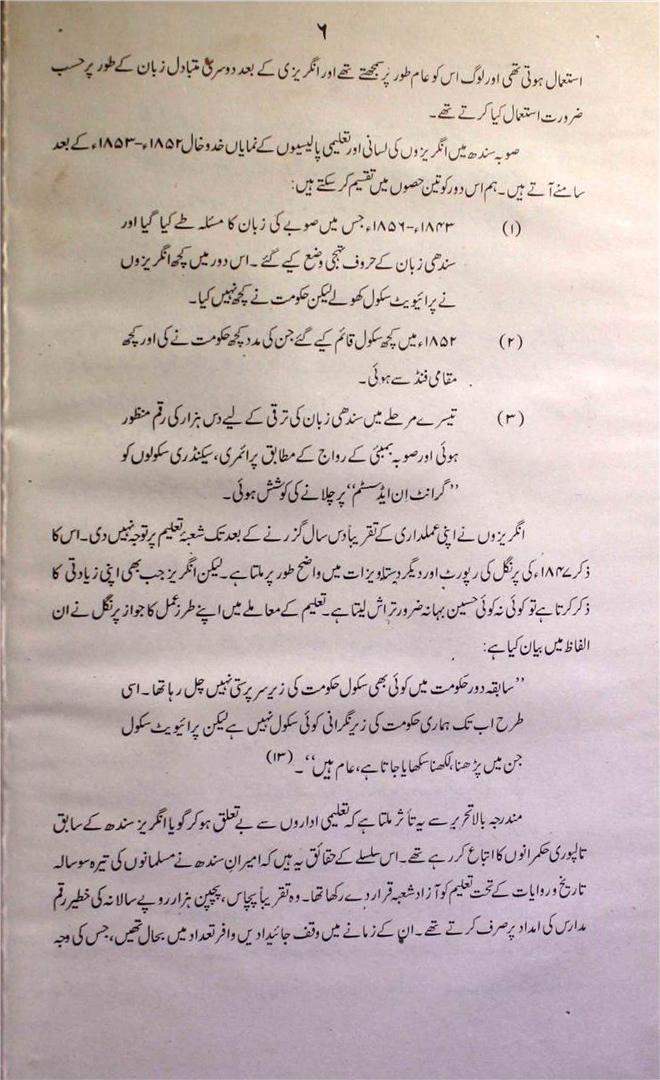 ۶
استعمال ہوتی تھی اور لوگ اس کو عام طور پر سمجھتے تھے اور انگریزی کے بعد دوسری متبادل زبان کے طور پر حسب
ضرورت استعمال کیا کرتے تھے۔
صوبہ سندھ میں انگریزوں کی لسانی اور تعلیمی پالیسیوں کے نمایاں خدوخال ۱۸۵۲ء-۱۸۵۳ء کے بعد
سامنے آتے ہیں۔ ہم اس دور کو تین حصوں میں تقسیم کر سکتے ہیں:
(۱) ۱۸۴۳ء-۱۸۵۶ء جس میں صوبے کی زبان کا مسئلہ طے کیا گیا اور
سندھی زبان کے حروف تہجی وضع کیے گئے۔ اس دور میں کچھ انگریزوں
نے پرائیویٹ سکول کھولے لیکن حکومت نے کچھ نہیں کیا۔
(۲) ۱۸۵۲ء میں کچھ سکول قائم کیے گئے جن کی مدد کچھ حکومت نے کی اور کچھ
مقامی فنڈ سے ہوئی۔
(۳) تیسرے مرحلے میں سندھی زبان کی ترقی کے لیے دس ہزار کی رقم منظور
ہوئی اور صوبہ بمبئی کے رواج کے مطابق پرائمری، سیکنڈری سکولوں کو
”گرانٹ ان ایڈ سسٹم“ پر چلانے کی کوشش ہوئی۔
انگریزوں نے اپنی عملداری کے تقریباً دس سال گزرنے کے بعد تک شعبۂ تعلیم پر توجہ نہیں دی۔ اس کا
ذکر ۱۸۴۷ء کی پرنگل کی رپورٹ اور دیگر دستاویزات میں واضح طور پر ملتا ہے۔ لیکن انگریز جب بھی اپنی زیادتی کا
ذکر کرتا ہے تو کوئی نہ کوئی حسین بہانہ ضرور تراش لیتا ہے۔ تعلیم کے معاملے میں اپنے طرز عمل کا جواز پرنگل نے ان
الفاظ میں بیان کیا ہے:
”سابقہ دور حکومت میں کوئی بھی سکول حکومت کی زیر سرپرستی نہیں چل رہا تھا۔ اسی
طرح اب تک ہماری حکومت کی زیر نگرانی کوئی سکول نہیں ہے لیکن پرائیویٹ سکول
جن میں پڑھنا، لکھنا سکھایا جاتا ہے، عام ہیں“۔ (۱۳)
مندرجہ بالا تحریر سے یہ تأثر ملتا ہے کہ تعلیمی اداروں سے بے تعلق ہو کر گویا انگریز سندھ کے سابق
تالپوری حکمرانوں کا اتباع کر رہے تھے۔ اس سلسلے کے حقائق یہ ہیں کہ امیرانِ سندھ نے مسلمانوں کی تیرہ سو سالہ
تاریخ و روایات کے تحت تعلیم کو آزاد شعبہ قرار دے رکھا تھا۔ وہ تقریباً پچاس، پچپن ہزار روپے سالانہ کی خطیر رقم
مدارس کی امداد پر صرف کرتے تھے۔ ان کے زمانے میں وقف جائیدادیں وافر تعداد میں بحال تھیں، جس کی وجہ